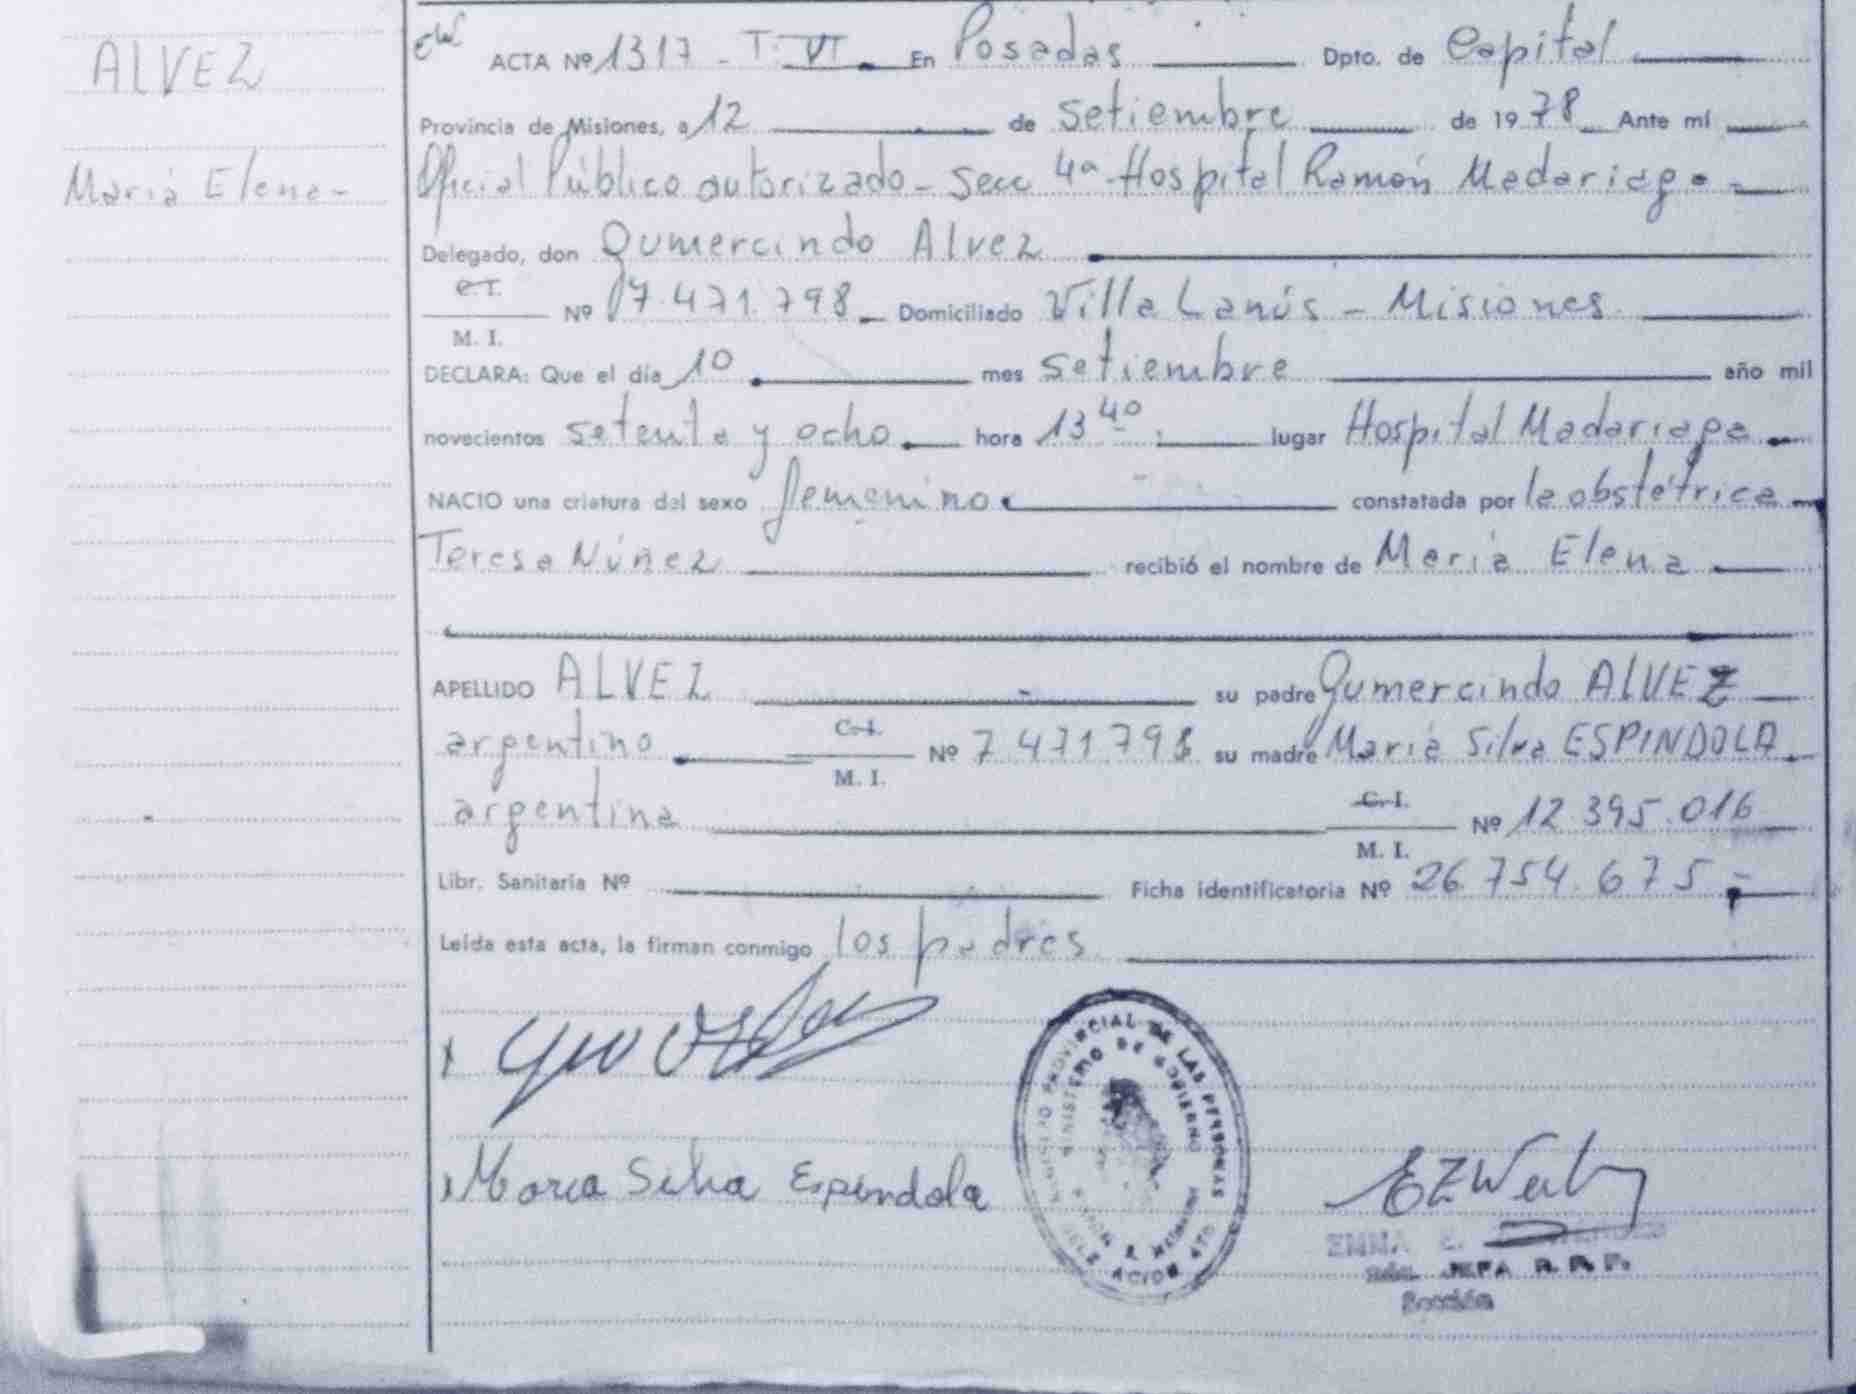 ALVEZ
María Elena-
ACTA Nº 1317 - T. VI. En Posadas Dpto. de Capital
Provincia de Misiones, a 12 de setiembre de 1978 Ante mí
Oficial Público autorizado - Secc 4ª - Hospital Ramón Madariaga -
Delegado, don Gumercindo Alvez
C.I.
Nº 7.471.798 Domiciliado Villa Lanús - Misiones
M. I.
DECLARA: Que el día 10 mes setiembre año mil
novecientos setenta y ocho hora 13 40 lugar Hospital Madariaga
NACIO una criatura del sexo femenino constatada por la obstétrica
Teresa Núñez recibió el nombre de María Elena
APELLIDO ALVEZ su padre Gumercindo ALVEZ
argentino C.I. Nº 7.471.798 su madre María Silva ESPINDOLA
M. I.
argentina C.I. Nº 12.395.016
M. I.
Libr. Sanitaria Nº Ficha identificatoria Nº 26.754.675-
Leída esta acta, la firman conmigo los padres
María Silva Espindola
REGISTRO PROVINCIAL DE LAS PERSONAS
MINISTERIO DE GOBIERNO
RAMON MADARIAGA
DELEGACION
EMMA
JEFA R. P. P.
Sección